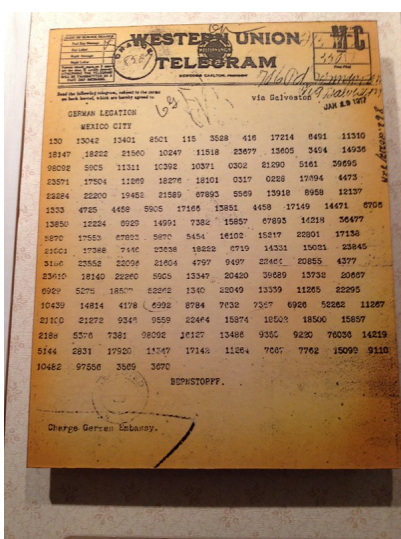 WESTERN UNION
TELEGRAM
NEWCOMB CARLTON, PRESIDENT
Send the following telegram, subject to the terms
on back hereof, which are hereby agreed to
via Galveston
JAN 29 1917
GERMAN LEGATION
MEXICO CITY
130 13042 13401 8501 115 3528 416 17214 6491 11310
18147 18222 21560 10247 11518 23677 13605 3494 14936
98092 5905 11311 10392 10371 0302 21290 5161 39695
23571 17504 11269 18276 18101 0317 0228 17694 4473
22284 22200 19452 21589 67893 5569 13918 8958 12137
1333 4725 4458 5905 17166 13851 4458 17149 14471 6706
13850 12224 6929 14991 7382 15857 67893 14218 36477
5870 17553 67893 5870 5454 16102 15217 22801 17138
21001 17388 7446 23638 18222 6719 14331 15021 23845
3156 23552 22096 21604 4797 9497 22464 20855 4377
23610 18140 22260 5905 13347 20420 39689 13732 20667
6929 5275 18507 52262 1340 22049 13339 11265 22295
10439 14814 4178 6992 8784 7632 7357 6926 52262 11267
21100 21272 9346 9559 22464 15874 18502 18500 15857
2188 5376 7381 98092 16127 13486 9350 9220 76036 14219
5144 2831 17920 11347 17142 11264 7667 7762 15099 9110
10482 97556 3569 3670
BERNSTORFF.
Charge German Embassy.